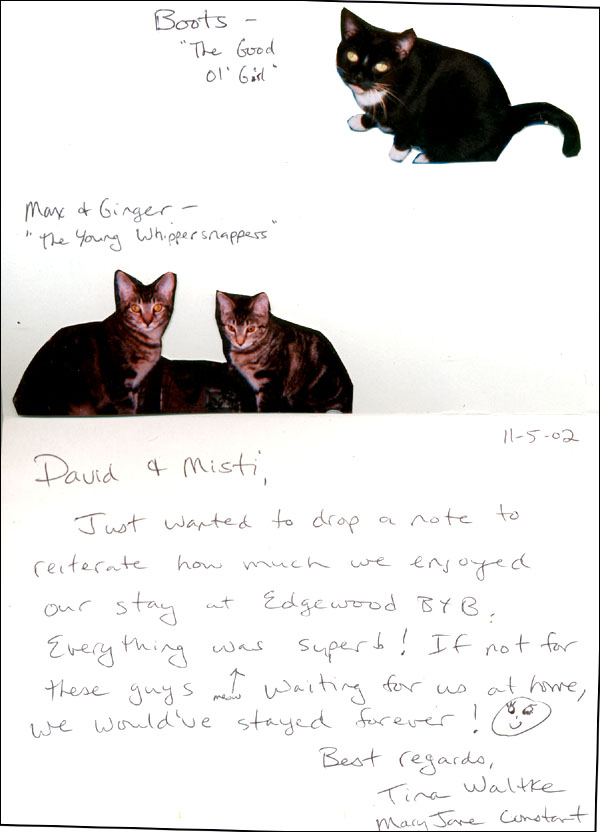 Boots -
"The Good
Ol' Girl"
Max & Ginger -
"The Young Whippersnappers"
11-5-02
David & Misti,
Just wanted to drop a note to
reiterate how much we enjoyed
our stay at Edgewood B&B.
Everything was superb! If not for
these guys meow waiting for us at home,
we would've stayed forever!
Best regards,
Tina Waltke
Mary Jane Constant